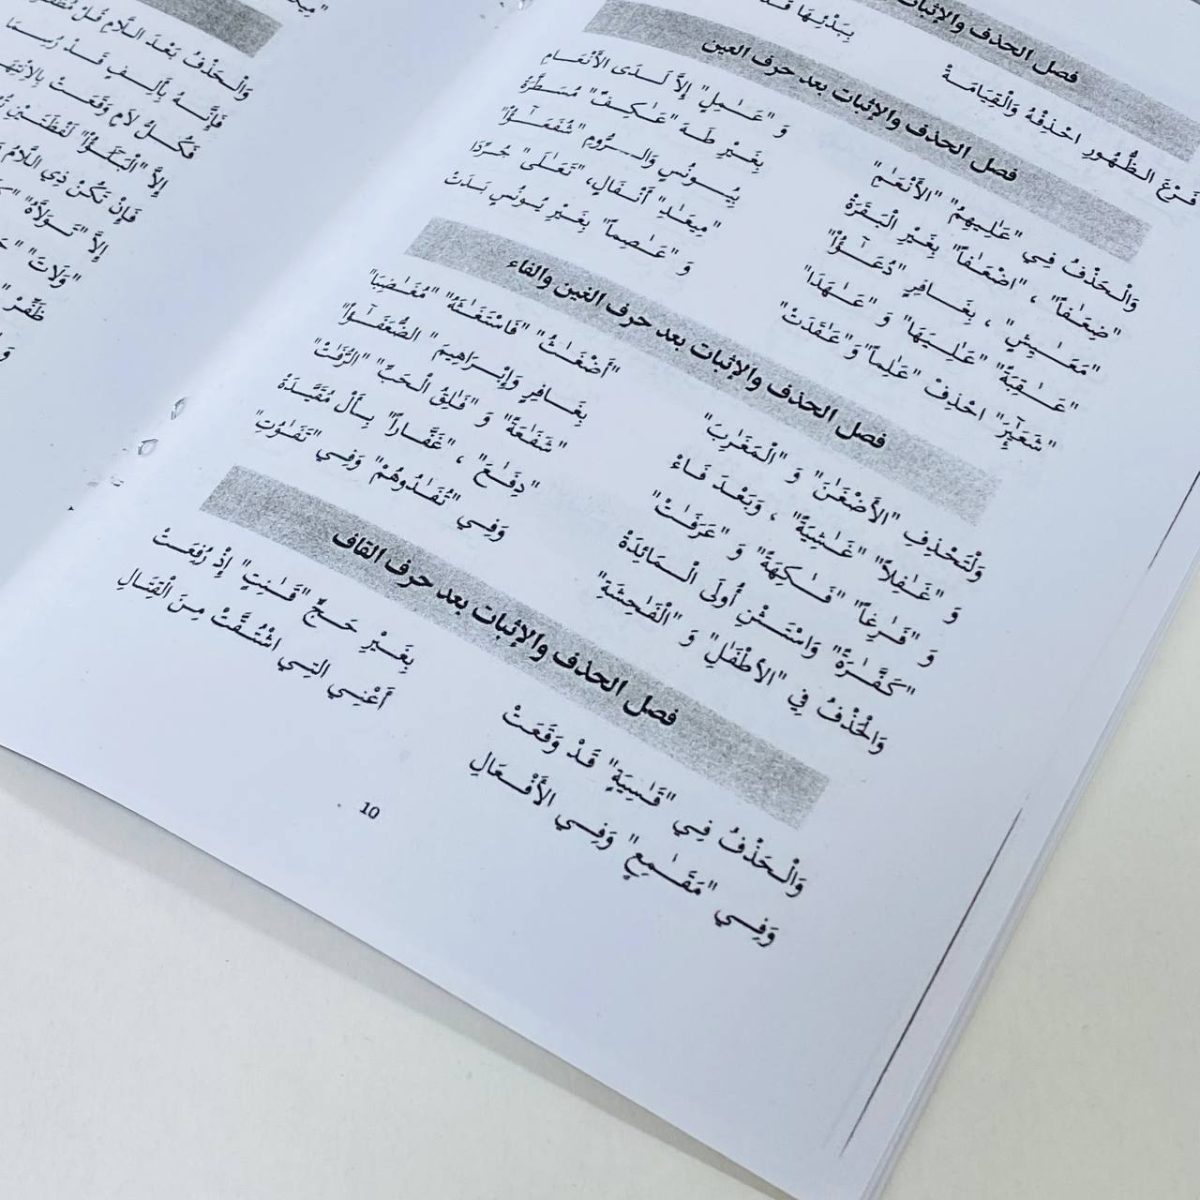 فصل الحذف والإثبات
فَرْعَ الظُّهُورِ احْذِفْهُ وَالْقِيَامَةْ بِبَدْئِهَا
فصل الحذف والإثبات بعد حرف العين
وَالْحَذْفُ فِي "عَٰلِيهِمْ" "الأَنْعَٰمِ" وَ "عَٰمِلٍ" إِلاَّ لَدَى الأَنْعَامِ
"ضِعَٰفاً" ، "اضْعَٰفاً" بِغَيْرِ الْبَقَرَةْ بِغَيْرِ طَهَ "عَٰكِفٌ" مُسَطَّرَةْ
"مَعَٰيِشَ" ، بِغَافِرٍ "دُعَٰٓؤُاْ" بِيُونُسٍ وَالرُّومِ "شُفَعَٰٓؤُاْ"
"عَٰقِبَةُ" "عَٰلِيَهَا" وَ "عَٰهَدَا" "مِيعَٰدِ" أَنْفَالٍ، "تَعَٰلَى" جُرِّدَا
"شَعَٰٓئِرَ" احْذِفْ "عَٰلِماً" وَ "عَٰقَدَتْ" وَ "عَٰصِماً" بِغَيْرِ يُونُسٍ بَدَتْ
فصل الحذف والإثبات بعد حرف الغين والفاء
وَلْتَحْذِفِ "الأَضْغَٰنَ" وَ "الْمَغَٰرِبَ" "أَضْغَٰثُ" "فَاسْتَغَٰثَهُ" "مُغَٰضِبَا"
وَ "غَٰفِلاً" "غَٰشِيَةً" ، وَبَعْدَ فَاءْ بِغَافِرٍ وَإِبْرَاهِيمَ "الضُّعَفَٰٓؤُاْ"
وَ "فَٰرِغاً" "فَٰكِهَةً" وَ "عَرَفَٰتْ" "شَفَٰعَةً" وَ "فَٰلِقُ الْحَبِّ" "الرُّفَٰتْ"
"كَفَّٰرَةٌ" وَاسْتَثْنِ أُولَى الْمَائِدَةْ "دِفَٰعُ" ، "غَفَّٰراً" بِأَلْ مُقَيَّدَةْ
وَالْحَذْفُ فِي "الأَطْفَٰلِ" وَ "الْفَٰحِشَةِ" وَفِي "تُفَٰدُوهُمْ" وَفِي "تَفَٰوُتِ"
فصل الحذف والإثبات بعد حرف القاف
وَالْحَذْفُ فِي "قَٰسِيَةٍ" قَدْ وَقَعَتْ بِغَيْرِ حَجٍّ "قَٰنِتٍ" إِذْ رُفِعَتْ
وَفِي "مَقَٰمِعٍ" وَفِي الأَفْعَالِ أَعْنِي التِي اشْتُقَّتْ مِنَ الْقِتَالِ
10
وَالْحَذْفُ بَعْدَ اللَّامِ قُلْ
فَإِنَّهُ بِأَلِفٍ قَدْ رُسِمَا
فَكُلُّ لَامٍ وَقَعَتْ
إِلاَّ
فَإِنْ تَكُنْ ذِي اللَّامُ
إِلاَّ